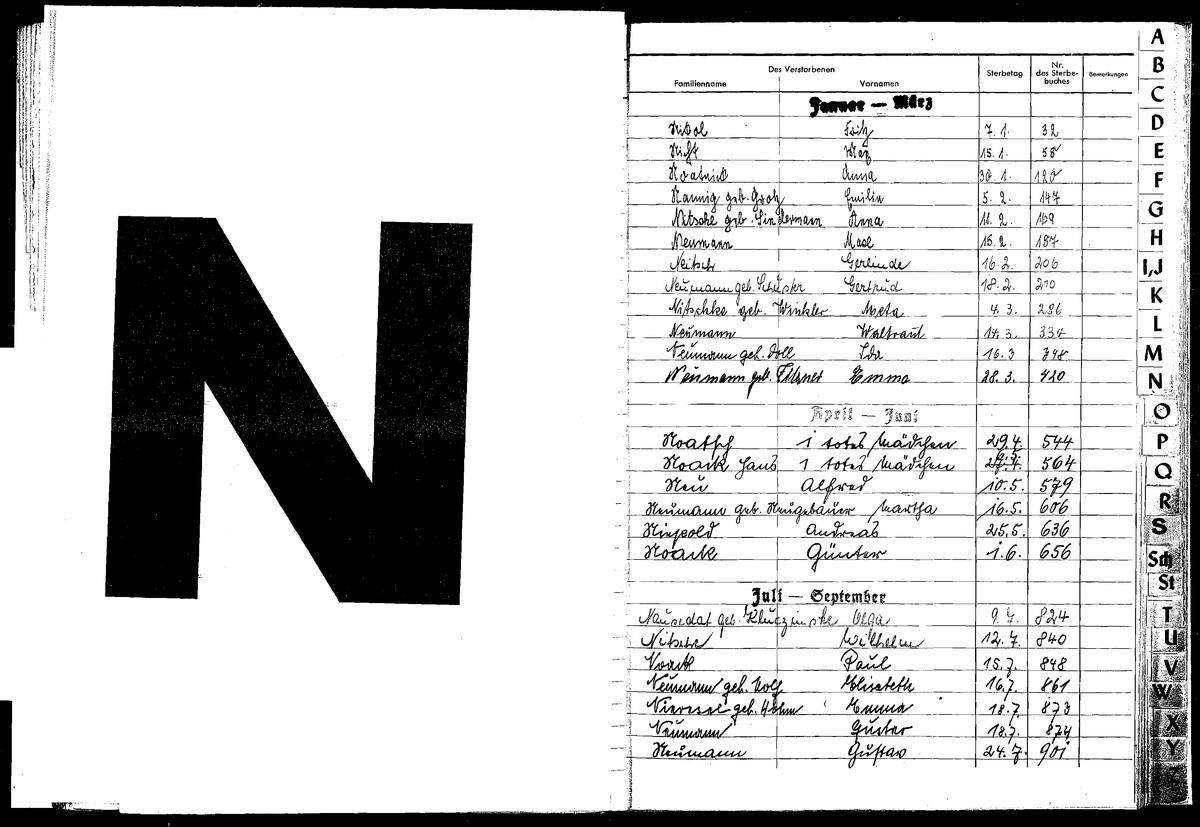 N
Des Verstorbenen
Familienname Vornamen Sterbetag Nr. des Sterbebuches Bemerkungen
Januar — März
Nikol Fritz 7. 1. 32
Nicht Max 15. 1. 58
Anna 30. 1. 120
Nannig geb. Emilie 5. 2. 147
Nitsche geb. Lindermann Anna 11. 2. 169
Neumann 15. 2. 187
Gerlinde 16. 2. 206
Neumann geb. Schuster Gertrud 18. 2. 210
Nitschke geb. Winkler Meta 4. 3. 286
Neumann Waltraut 14. 3. 334
Neumann geb. Doll Ida 16. 3 348
Neumann geb. Filzner Emma 28. 3. 420
April — Juni
Noatsch 1 totes Mädchen 29.4. 544
Noack Hans 1 totes Mädchen 564
Neu Alfred 10. 5. 579
Neumann geb. Neugebauer Martha 16. 5. 606
Niepold Andreas 25. 5. 636
Noack Günter 1. 6. 656
Juli — September
Olga 9. 7. 824
Nitsche Wilhelm 12. 7. 840
Noack Paul 15. 7. 848
Neumann geb. Wolf Elisabeth 16. 7. 861
geb. Höhm Emma 18. 7. 873
Neumann Gustav 18. 7. 874
Neumann Gustav 24. 7. 901
A
B
C
D
E
F
G
H
I,J
K
L
M
N
O
P
Q
R
S
Sch
St
T
U
V
W
X
Y